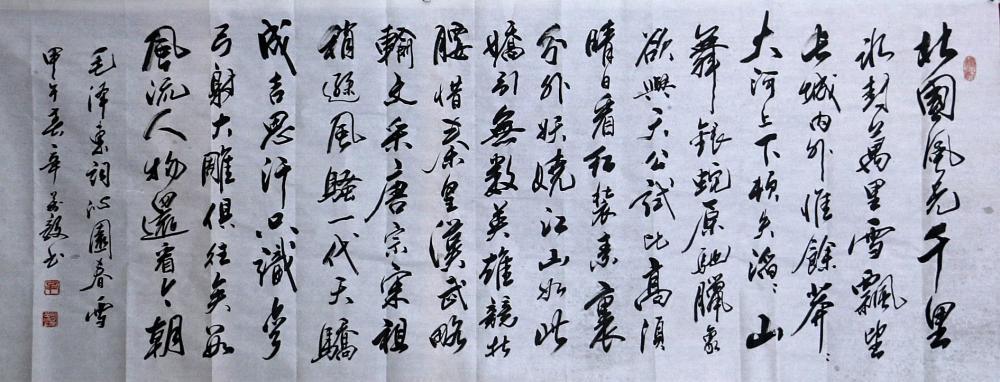 北國風光千里
冰封萬里雪飄望
长城内外惟餘莽〻
大河上下頓失滔〻山
舞銀蛇原驰臘象
欲與天公試比高須
晴日看红装素裹
分外妖嬈江山如此
嬌引無數英雄競折
腰惜秦皇漢武略
輸文采唐宗宋祖
稍遜風騷一代天驕
成吉思汗只識彎
弓射大雕俱往矣数
風流人物還看今朝
毛泽东詞沁園春雪
甲午春辛书